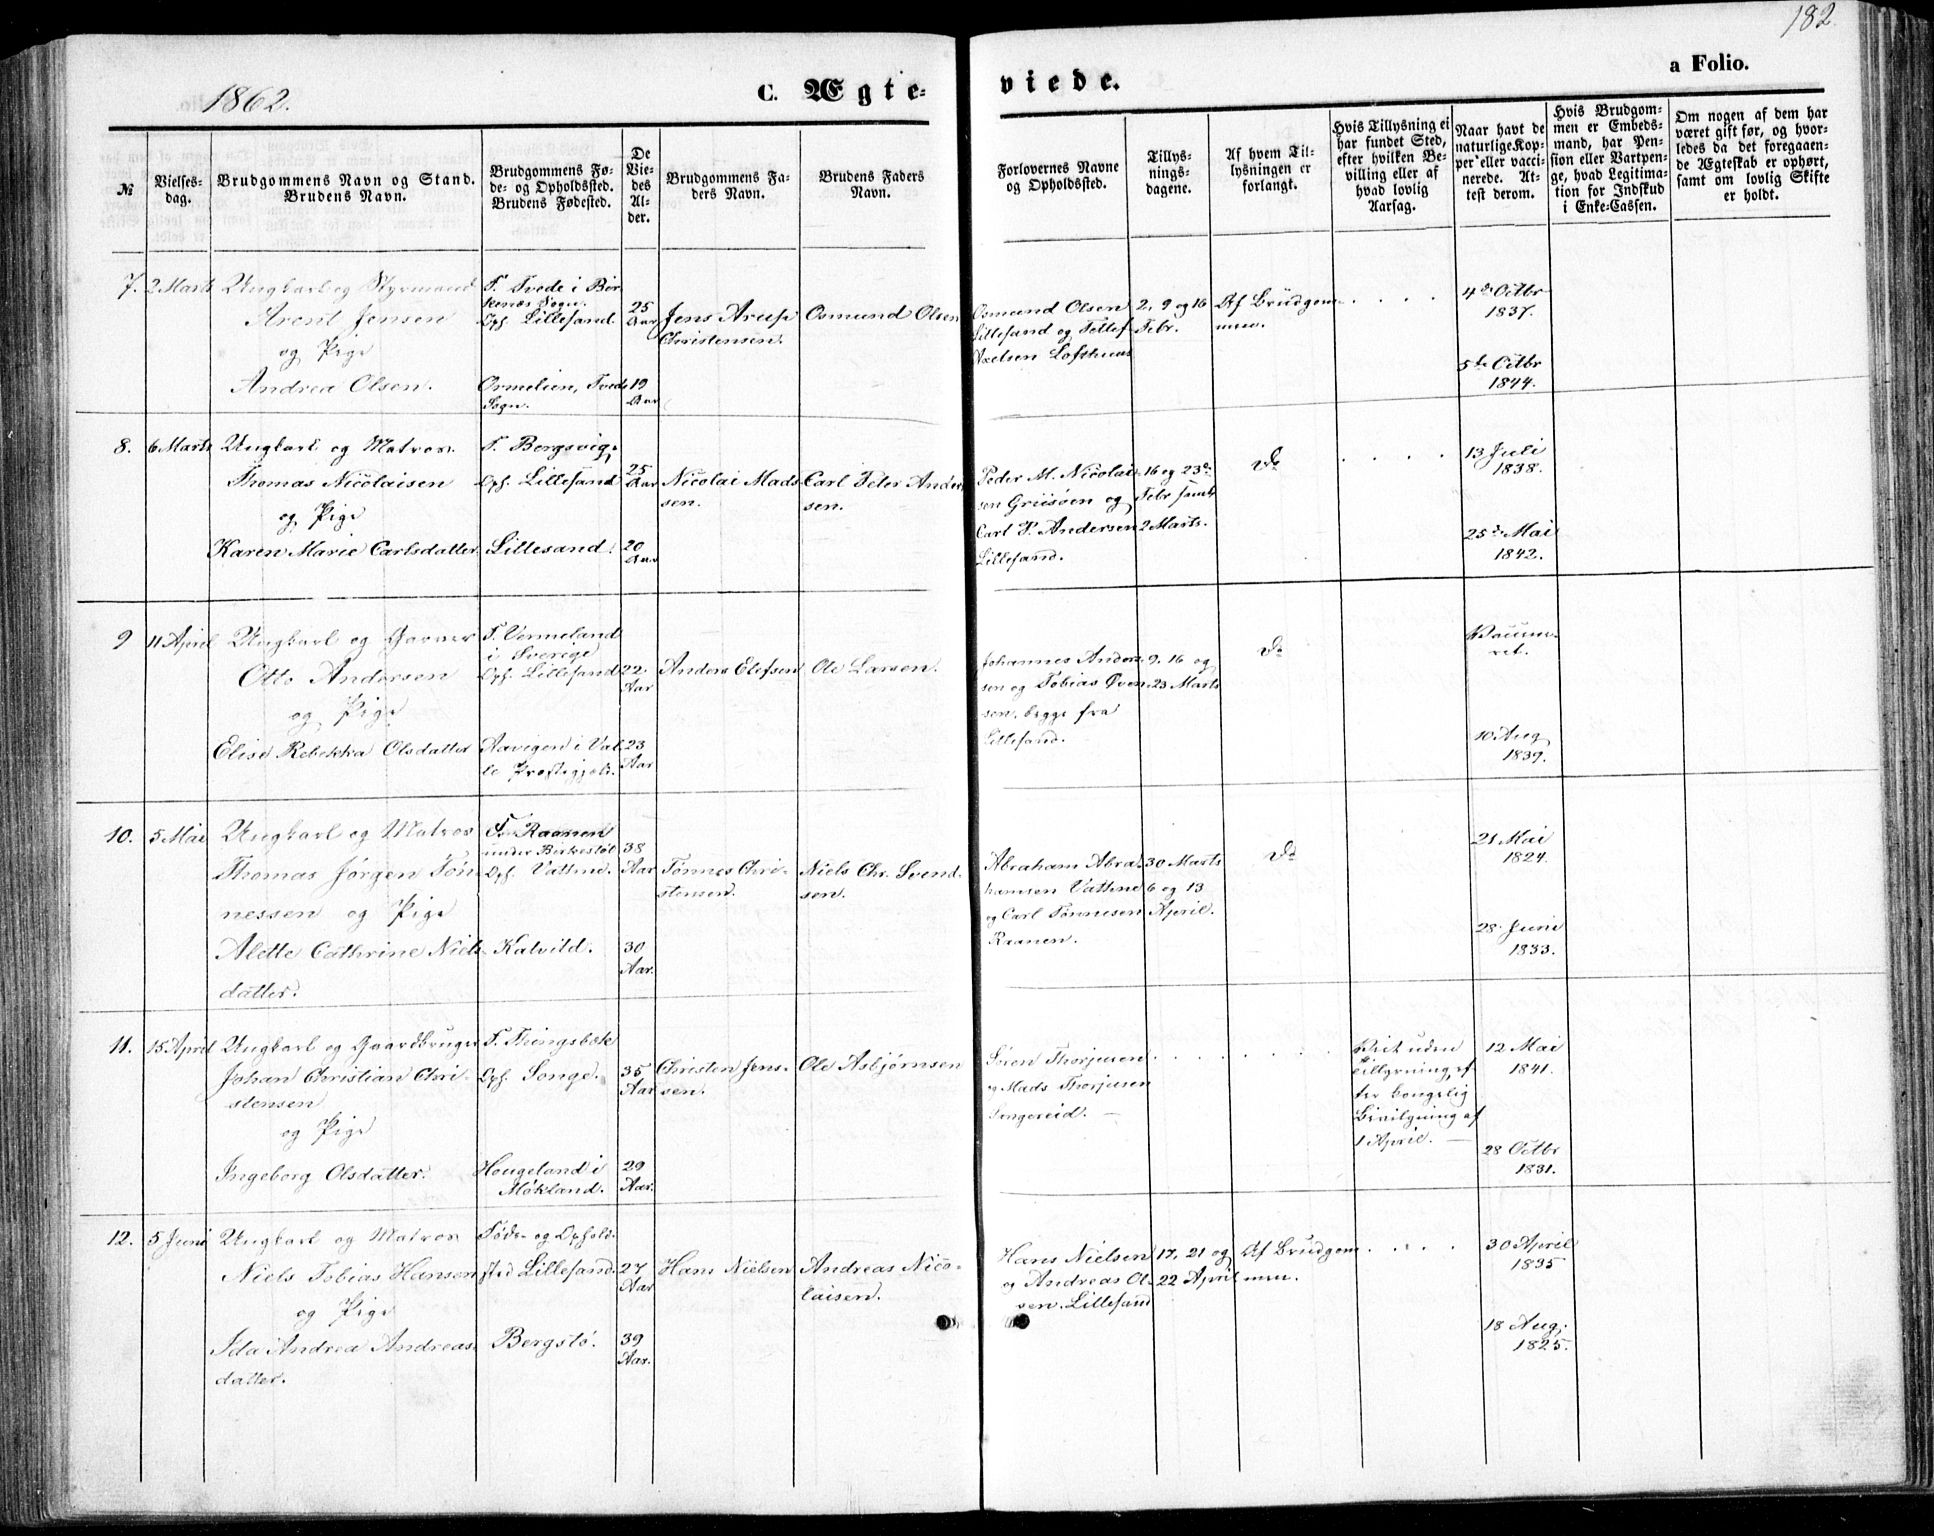 182.
1862.
C. Ægte-
viede.
a Folio.
№
Vielses-
dag.
Brudgommens Navn og Stand.
Brudens Navn.
Brudgommens Fø-
de- og Opholdsted.
Brudens Fødested.
De
Vie-
des
Al-
der.
Brudgommens Fa-
ders Navn.
Brudens Faders
Navn.
Forlovernes Navne
og Opholdsted.
Tillys-
nings-
dagene.
Af hvem Til-
lysningen er
forlangt.
Hvis Tillysning ei
har fundet Sted,
efter hvilken Be-
villing eller af
hvad lovlig
Aarsag.
Naar havt de
naturlige Kop-
per eller vacci-
nerede. At-
test derom.
Hvis Brudgom-
men er Embeds-
mand, har Pen-
sion eller Vartpen-
ge, hvad Legitima-
tion for Indskud
i Enke-Cassen.
Om nogen af dem har
været gift før, og hvor-
ledes da det foregaaen-
de Ægteskab er ophørt,
samt om lovlig Skifte
er holdt.
7.
2 Marts
Ungkarl og Styrmand
Arent Jensen
og Pige
Andrea Olsen.
F. Tvede i Bir
kenæs Sogn.
Oph. Lillesand.
Ormelien, Tvede
Sogn.
25
Aar
19
Aar
Jens Arup
Christensen.
Osmund Olsen
Osmund Olsen
Lillesand og Tellef
Axelsen Lofthuus
2, 9 og 16
Febr.
Af Brudgom-
men.
4de Octbr
1837.
5te Octbr
1844.
8.
6 Marts
Ungkarl og Matros.
Thomas Nicolaisen
og Pige
Karen Marie Carlsdatter
F. Bergsvig,
Oph. Lillesand
Lillesand.
25
Aar
20
Aar
Nicolai Mads
sen.
Carl Peter Anders
sen.
Peder M. Nicolai-
sen Griisøen og
Carl P. Andersen
Lillesand.
16 og 23de
Febr samt
2 Marts.
Do
13 Juli
1838.
25de Mai
1842.
9
11 April
Ungkarl og Garver
Otto Andersen
og Pige
Elise Rebekka Olsdatter
F. Vermeland
i Sverige
Oph. Lillesand
Aavigen i Val-
le Præstegjeld.
22
Aar
23
Aar
Anders Elefsen
Ole Larsen.
Johannes Anders
sen og Tobias Even-
sen, begge fra
Lillesand.
9, 16 og
23 Marts
Do
Vaccine-
ret.
10 Aug
1839.
10.
5 Mai
Ungkarl og Matros
Thomas Jørgen Tøn-
nessen og Pige
Alette Cathrine Niels-
datter.
F. Raanen
under Birkestøl
Oph. Vattne.
Kalvild.
38
Aar
30
Aar.
Tønnes Chri-
stensen.
Niels Chr. Svend-
sen.
Abraham Abra-
hamsen Vattne
og Carl Tønnesen
Raanen.
30 Marts
6 og 13
April.
Do
21 Mai
1824.
28. Juni
1833.
11.
15 April
Ungkarl og Gaardbruger
Johan Christian Chri-
stensen
og Pige
Ingeborg Olsdatter.
F. Thingsbæk
Oph. Songe.
Hougeland i
Møkland.
35
Aar
29
Aar.
Christen Jens-
sen.
Ole Asbjørnsen
Søren Thorjusen
og Mads Thorjusen
Songereid.
Viet uden
tillysning, ef
ter kongelig
Bevilgning af
1 April.
12 Mai
1841.
28 Octbr
1831.
12.
5 Juni
Ungkarl og Matros
Niels Tobias Hansen
og Pige
Ida Andrea Andreas-
datter.
Føde- og Ophold-
sted Lillesand.
Bergstø.
27
Aar
39
Aar.
Hans Nielsen
Andreas Nico-
laisen.
Hans Nielsen
og Andreas Ol-
sen. Lillesand
17, 21 og
22 April
Af Brudgom
men.
30 April
1835
18 Aug.
1825.